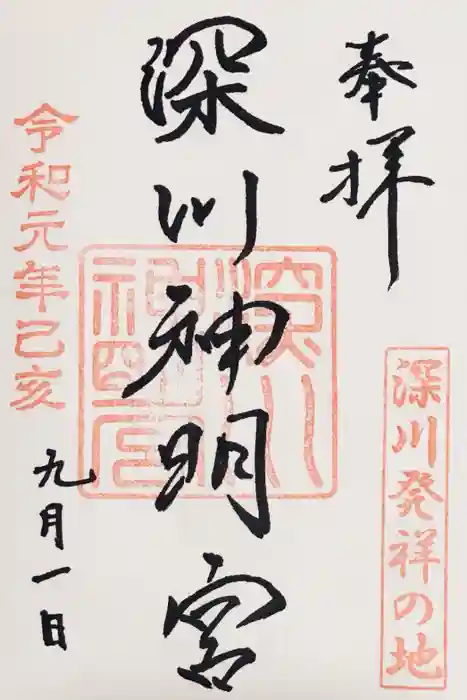 奉拝
深川発祥の地
深川神明宮
令和元年己亥
九月一日